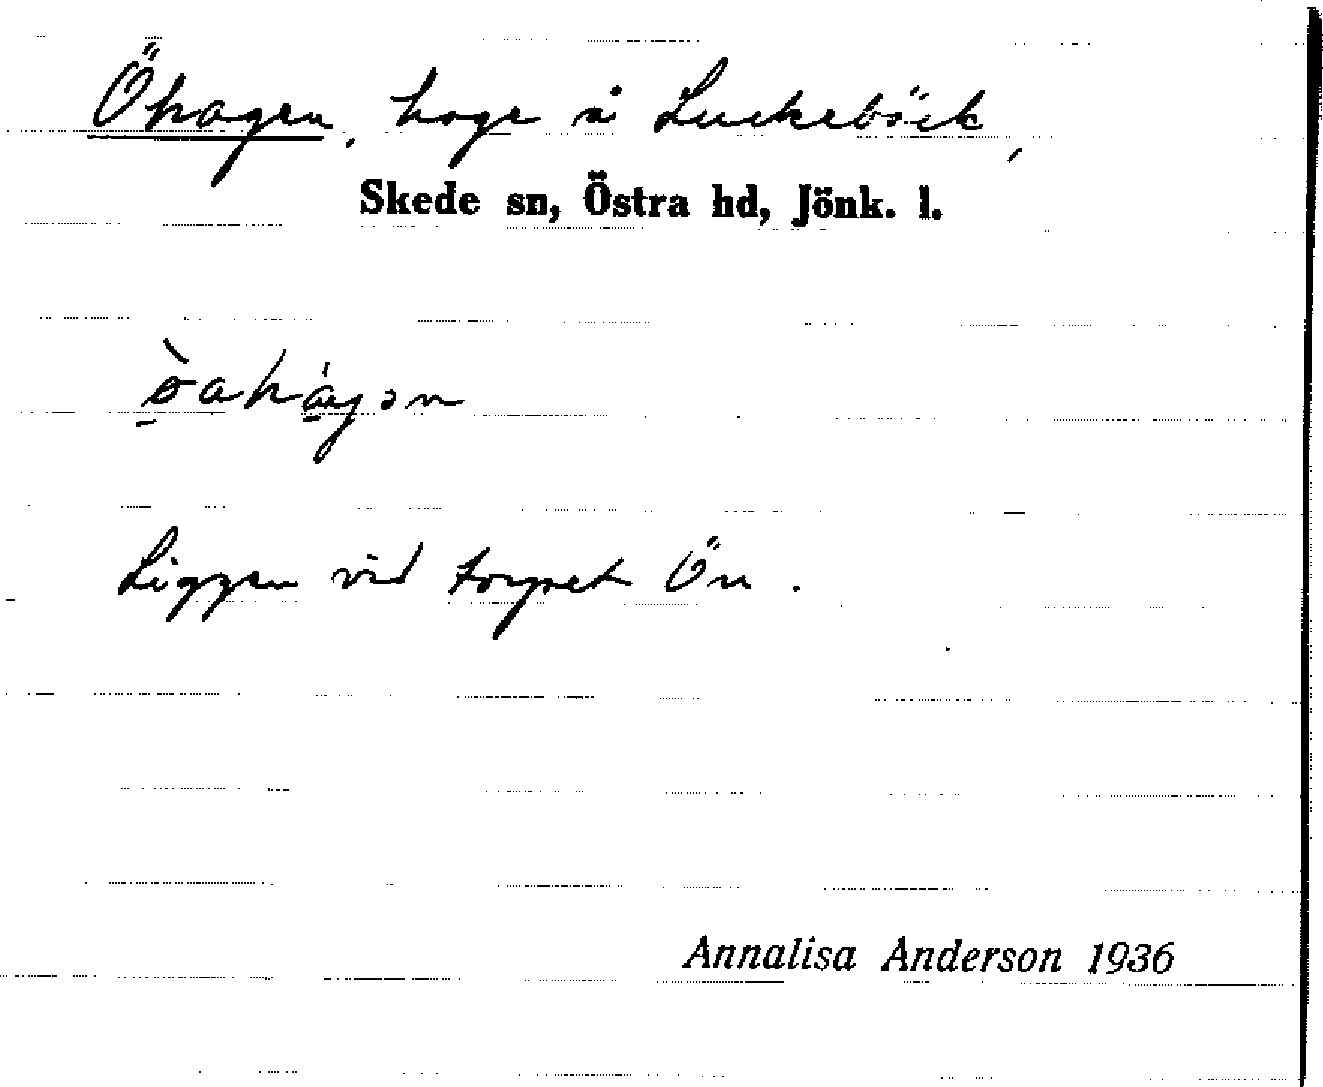 Öhagen, hage å Luckebäck,
Skede sn, Östra hd, Jönk. l.
Ligger vid torpet Ön.
Annalisa Anderson 1936